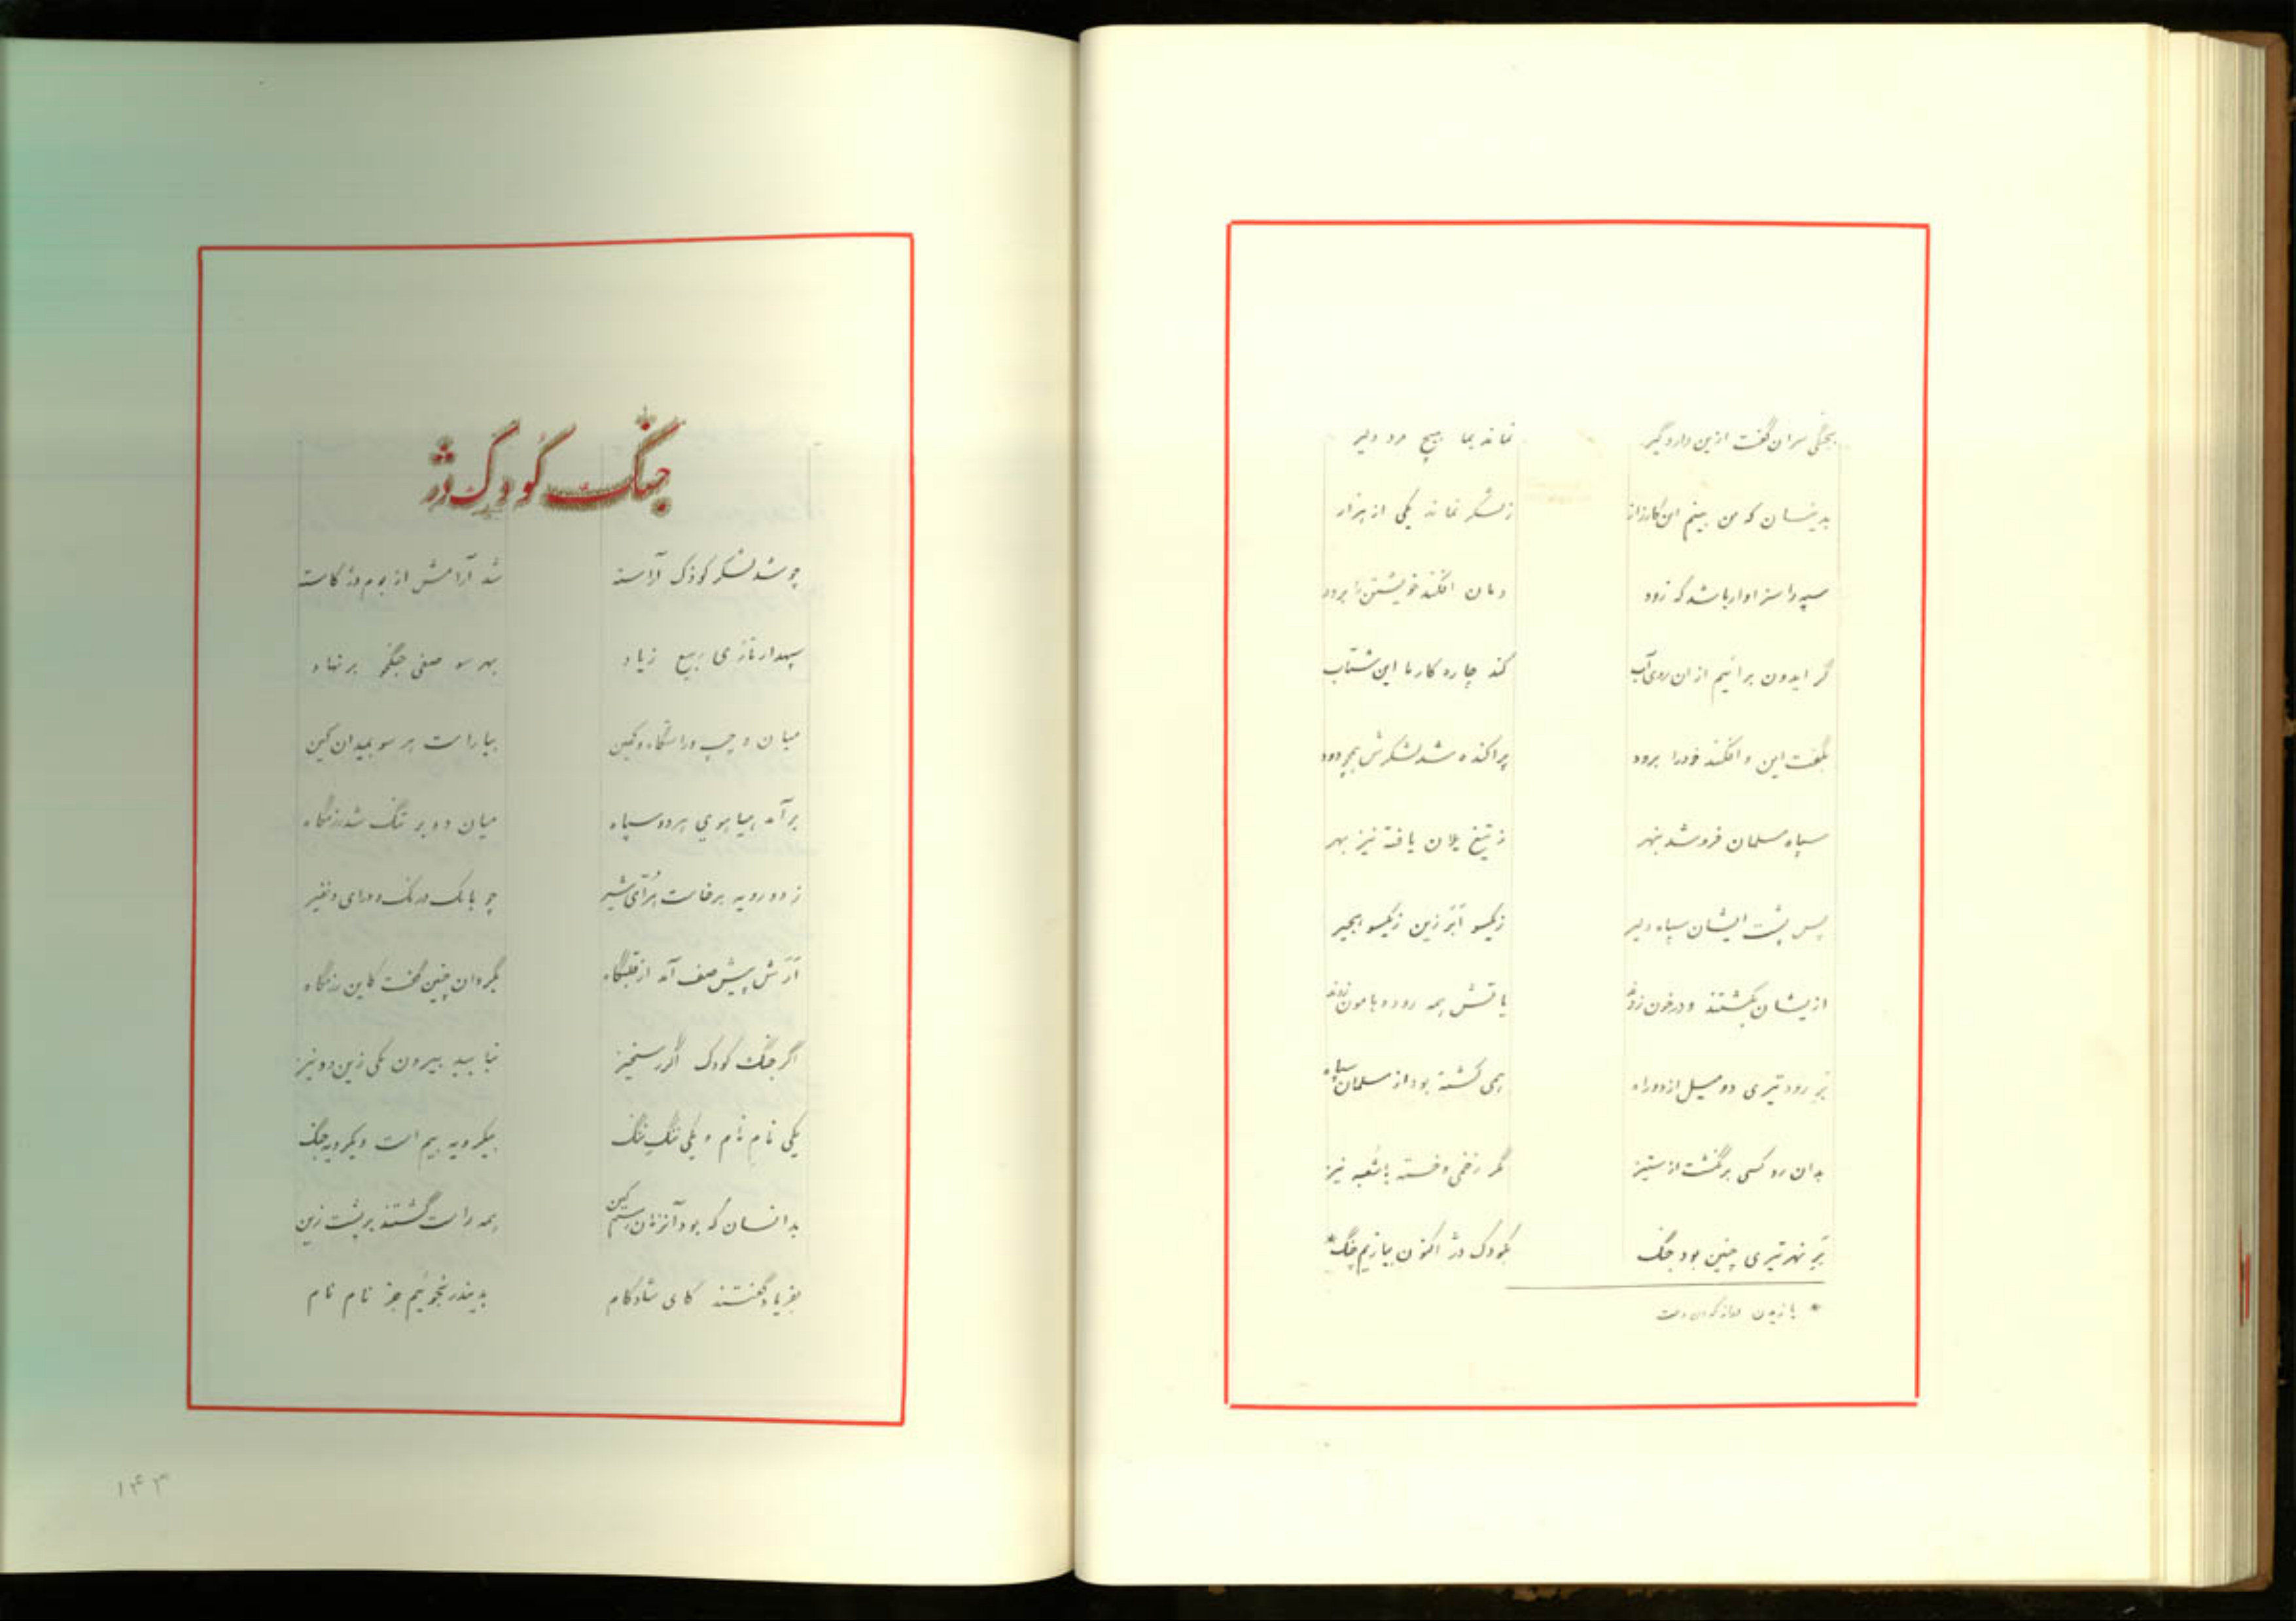 بجنگی سران گفت ازین دار و گیر نماند بما هیچ مرد دلیر
بدینسان که من بینم این کارزار ز لشکر نماند یکی از هزار
سپه را سزاوار باشد که زود دمان افکند خویشتن را برود
گر ایدون برانیم از ان روی آب کند چاره کار ما این شتاب
بگفت این و افکند خود را برود پراکنده شد لشکرش همچو دود
سپاه مسلمان فرو شد بنهر ز تیغ یلان یافته نیز بهر
پس پشت ایشان سپاه دلیر زیکسو ابر زین زیکسو بجیر
ازیشان بکشتند و در خون زدند باتش همه رود و هامون زدند
بر رود تیری دو میل از دو راه همی کشته بود از مسلمان سپاه
بدان رو کسی برنگشت از ستیز مگر زخمی و خسته باشعبه نیز
بر نهر تیری چنین بود جنگ بکودک دژ اکنون بیازیم چنگ*
* یازیدن دراز کردن دست
جنگ کودک دژ
چو شد لشکر کودک آراسته شد آرامش از بوم دژ کاسته
سپهدار تازی ربیع زیاد بهر سو صفی جنگجو بر نهاد
میان و چپ و راستگاه و کمین بیاراست هر سو بمیدان کین
برآمد هیاهوی هر دو سپاه میان دو بر تنگ شد رزمگاه
ز دو رویه برخاست هرّای شیر چو بانگ درنگ و درای و نفیر
آرش پیش صف آمد از قلبگاه بگردان چنین گفت کاین رزمگاه
اگر جنگ کودک اگر رستخیز نیاید بیرون یکی زین دو نیز
یکی نام نام و یکی ننگ ننگ بیکرویه بیم است و یکرویه جنگ
بدانسان که بود آنزمان رسم کین همه راست گشتند بر پشت زین
بفریاد گفتند کای شادکام بدینذر نجوئیم جز نام نام
۱۴۳